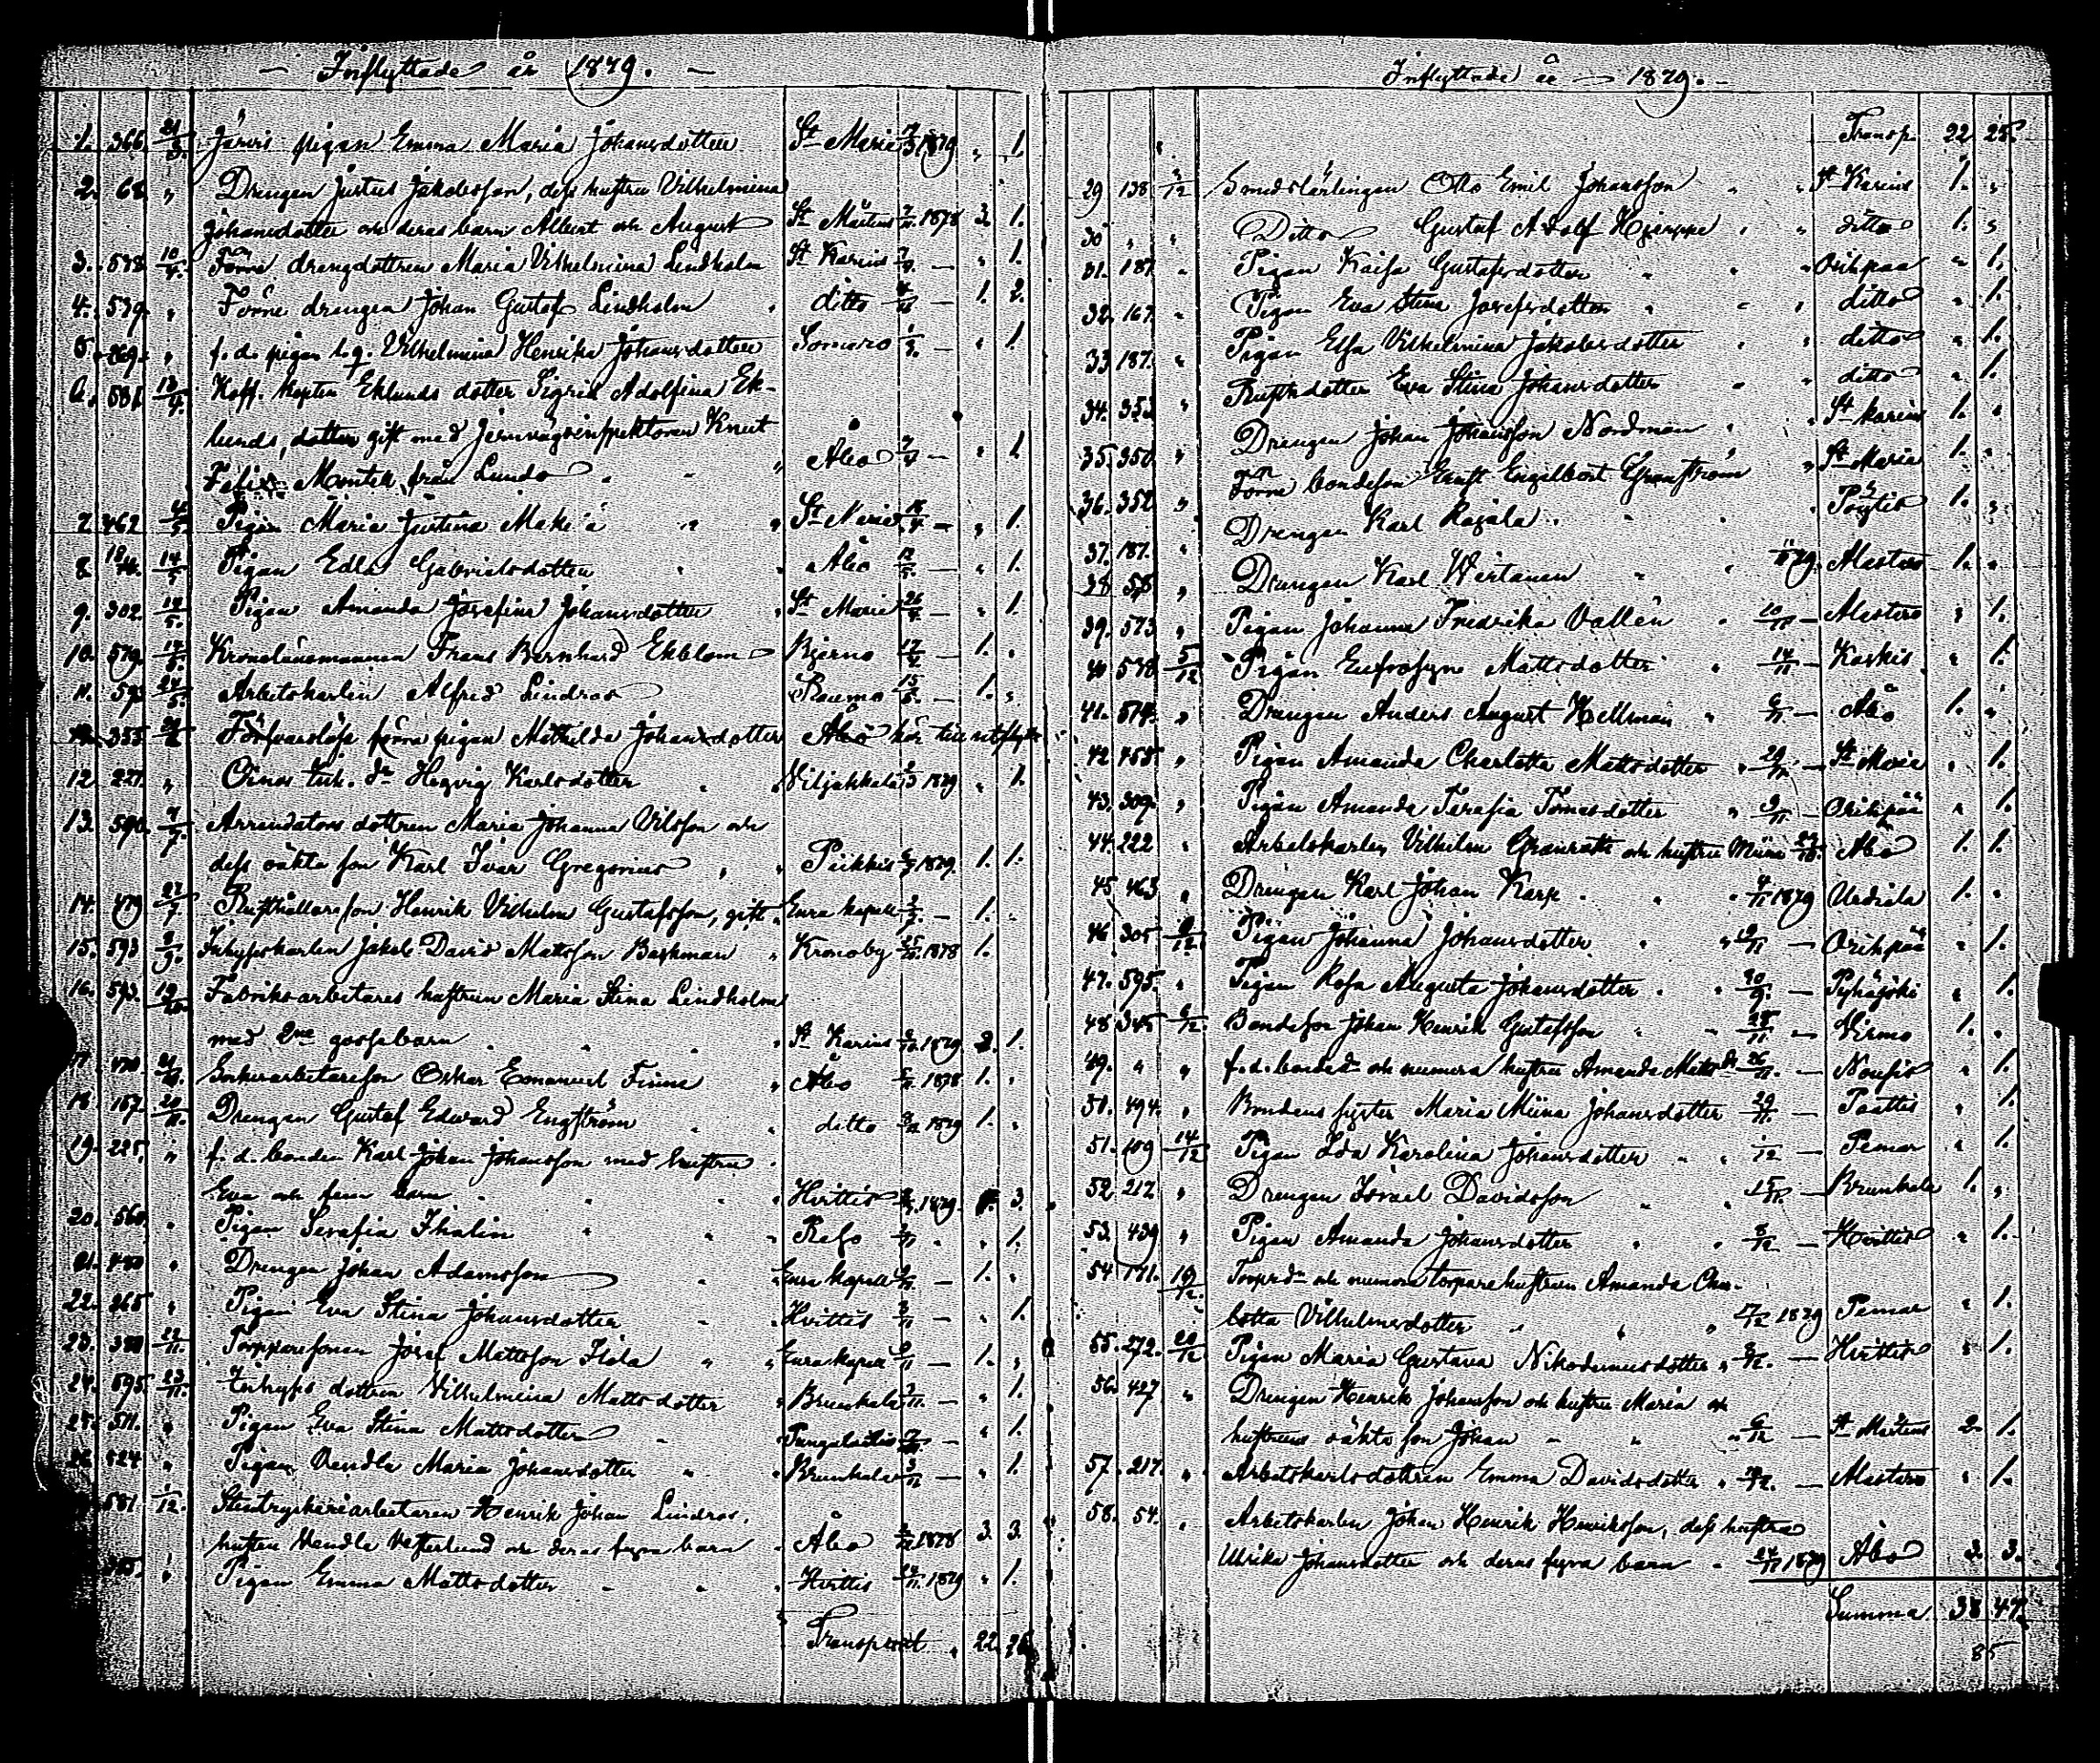 — Inflyttade år 1879. —
1. 366. 21/3. Järvis pigan Emma Maria Johansdotter St Marie 1879 „ 1.
2. 68. „ Drengen Justus Jakobsson, dess hustru Vilhelmina
Johansdotter och deras barn Albert och August St Mårtens 1878 3. 1.
3. 578. 10/4. Förre drengdottren Maria Vilhelmina Lindholm St Karins — „ 1.
4. 579. „ Förre drengen Johan Gustaf Lindholm ditto — 1. 2.
5. 269. „ f. d. pigan Vilhelmina Henrika Johansdotter Somero — „ 1
6. 581. 13/4. Koff. kapten Eklunds dotter Sigrid Adolfina Ek-
lunds, dotter gift med Jernvägsinspektoren Knut
Felix Montell från Lundo Åbo — „ 1
7. 462. 4/5. Pigan Maria Justina Mäki'ä St Marie — „ 1.
8. 14/5 Pigan Edla Gabrielsdotter Åbo 12/5. — „ 1.
9. 302. 14/5. Pigan Amanda Josefina Johansdotter St Marie 26/4. — „ 1.
10. 579. 14/5. Kronolänsmannen Frans Bernhard Ekblom Bjerno 17/4 — 1. „
11. 592. 24/5. Arbetskarlen Alfred Lindros Raumo 15/5. — 1. „
355. Förfvarslösa förra pigan Mathilda Johansdotter Åbo hör till utflytt
12. 221. „ Oinas tuk. dr Hegvig Karlsdotter Viljakkala 1879 „ 1.
13. 590. 4/7. Arrendators dottren Maria Johanna Vilsson och
dess oäkta son Karl Ivar Gregorius Piikkis 1879. 1. 1.
14. 479. 27/7 Rusthållareson Henrik Vilhelm Gustafsson, gift Eura kapell — 1. „
15. 593. 8/9. Inhyseskarlen Jakob David Mattsson Backman Kronoby 1878 1.
16. 593. 19/10. Fabriksarbetares hustrun Maria Stina Lindholm
med 2ne gossebarn St Karins 1879. 2. 1.
17. 470. Sockerarbetareson Oskar Emanuel Finne Åbo 1878 1. „
18. 167. 20/11. Drengen Gustaf Edward Engström ditto 1879 1. „
19. 225. „ f. d. bonden Karl Johan Johansson med hustru
Eva och fem barn Hvittis 1879. 3.
20. 560. „ Pigan Serafia Ikalin Refso „ 1.
21. 480 „ Drengen Johan Adamsson Eura kapell — 1. „
22. 265 „ Pigan Eva Stina Johansdotter Hvittis — „ 1.
23. 380 22/11. Torpparesonen Josef Mattsson Iida Eura kapell — 1. „
24. 595. 23/11. Inhyses dottren Vilhelmina Mattsdotter Brunkala — „ 1.
25. 511. „ Pigan Eva Stina Mattsdotter Pungalaitio — „ 1.
26. 524 „ Pigan Vendla Maria Johansdotter Brunkala — „ 1.
581. 1/12. Stentryckeriarbetaren Henrik Johan Lindros,
hustru Vendla Vesterlund och deras fyra barn Åbo 1878 3. 3.
„ Pigan Emma Mattsdotter Hvittis 1879 „ 1.
Transport 22. 25.
Inflyttade år — 1879. —
Transp. 22 25.
29 138 3/12 Smedslärlingen Otto Emil Johansson St Karins 1. „
30 „ „ Ditto Gustaf Adolf Hjerppe ditto 1. „
31. 187. „ Pigan Kaisa Gustafsdotter Orihpää „ 1.
32. 167. „ Pigan Eva Stina Josefsdotter ditto „ 1.
33 187. „ Pigan Elsa Vilhelmina Jakobsdotter ditto „ 1.
34. 353 „ Rusth.dotter Eva Stina Johansdotter ditto „ 1.
35. 350. „ Drengen Johan Johansson Nordman St Karins 1. „
36. 352. „ Förre bondeson Ernst Engelbert Granström St Marie 1. „
37. 187. „ Drengen Karl Rajala Pöytis 1. „
38 58 „ Drengen Karl Wirtanen 879. Alastaro 1. „
39. 573. „ Pigan Johanna Fredrika Vallen 10/11 — Alastaro „ 1.
40 578. 5/12 Pigan Eufrosyn Mattsdotter 14/11 — Karkis „ 1.
41. 574. „ Drengen Anders August Hellman 6/11 — Åbo 1. „
42 458 „ Pigan Amanda Charlotta Mattsdotter — St Marie „ 1.
43. 309. „ Pigan Amanda Serafia Tomasdotter — Orihpää „ 1.
44. 222 „ Arbetskarlen Vilhelm Granroth och hustru Miina Åbo 1. 1.
45 463 „ Drengen Karl Johan Karp 4/11 1879 Urdiala 1. „
46 305 9/12. Pigan Johanna Johansdotter — Orihpää „ 1.
47. 595. „ Pigan Rosa Augusta Johansdotter 30/9. — Pyhäjoki „ 1.
48 345 6/12. Bondeson Johan Henrik Gustafsson 28/11 — Virmo 1. „
49. „ „ f. d. bonded. och numera hustru Amanda Mattsdr 26/11. — Nousis „ 1.
50. 494. „ Bondens syster Maria Miina Johansdotter 29/11. — Paattis „ 1.
51. 109 14/12 Pigan Ida Karolina Johansdotter 1/12 — Pemar „ 1.
52 217 „ Drengen Israel Davidsson — Brunkala 1. „
53. 439 „ Pigan Amanda Johansdotter 8/12 — Hvittis „ 1.
54 171. 19/12. Torpard. och numera torparehustrun Amanda Char-
lotta Vilhelmsdotter 17/12 1879 Pemar „ 1.
55. 272. 20/12 Pigan Maria Gustava Nikodemusdotter — Hvittis „ 1.
56. 427 „ Drengen Henrik Johansson och hustru Maria och
hustruns oäkta son Johan 6/12 — St Mårtens 2. 1.
57. 217. „ Arbetskarlsdottren Emma Davidsdotter — Alastaro „ 1.
58. 54. „ Arbetskarlen Johan Henrik Henriksson, dess hustru
Ulrika Johansdotter och deras fyra barn 1879 Åbo 3. 3.
Summa 38 47.
85